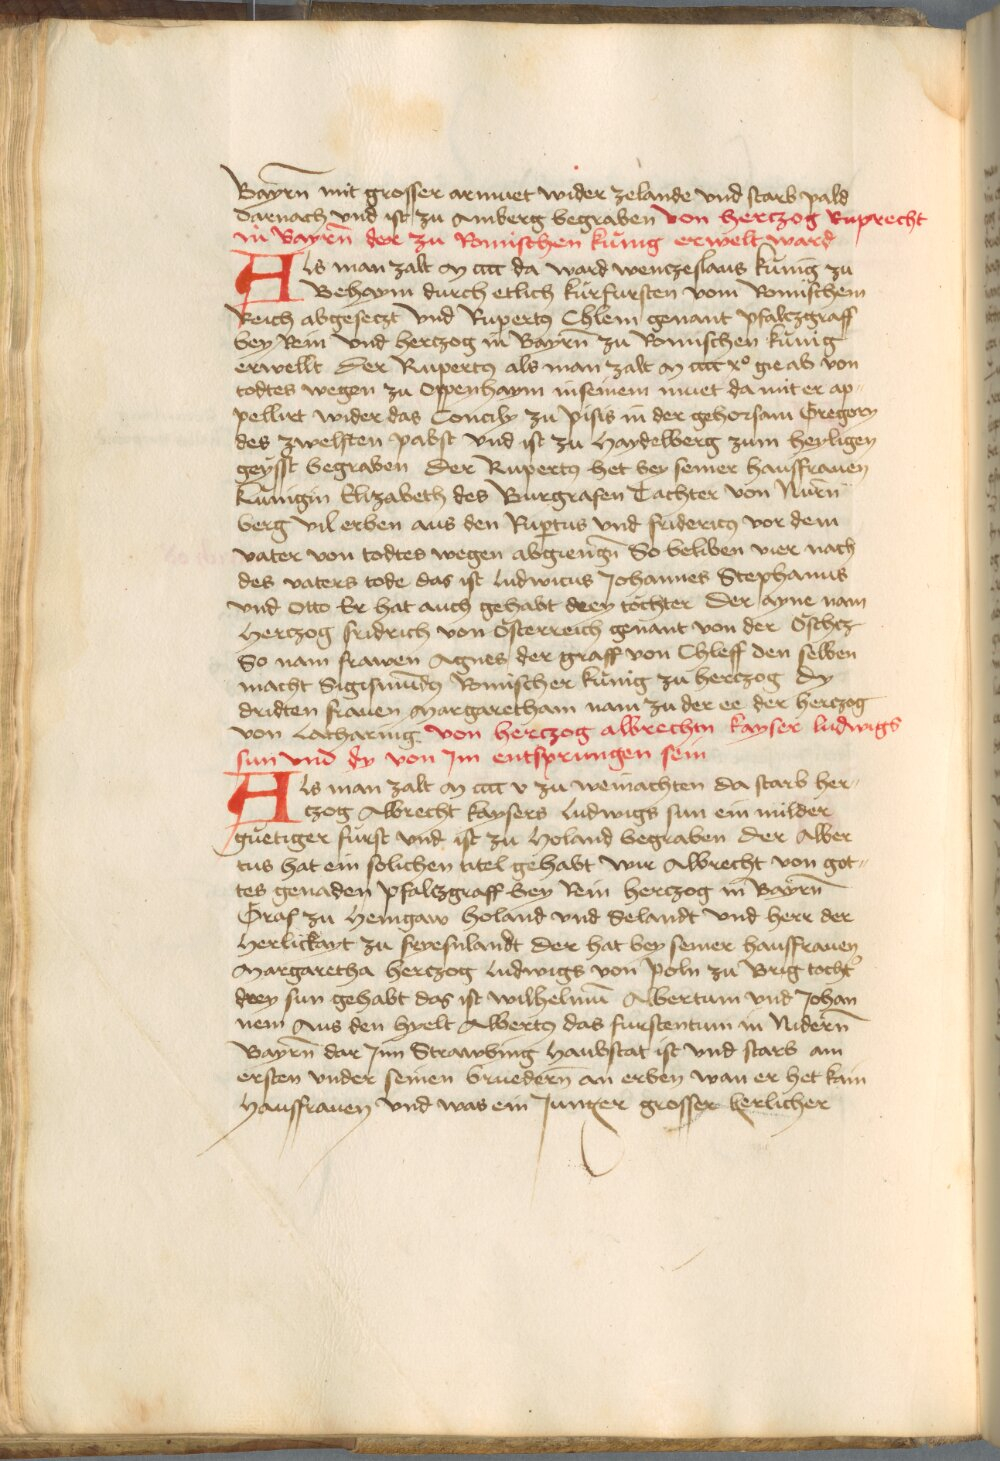 Bayrn̄ mit grosser armuet wider zelande vnd starb pald
darnach vnd ist zu Amberg begraben von hertzog Ruprecht
in Bayrn̄ der zu Romischen kunig erwelt ward
Als man zalt M cccc da ward wenczeslaus kunig zu
Behaym durch etlich kurfursten vom Romischem
Reich abgeseczt vnd Rupertꝰ Chlem genant pfalczgraff
bey Rein vnd hertzog in Bayrn̄ zu Romischen kunig
erwellt Der Rupertꝰ als man zalt M cccc xº gie ab von
todtes wegen zu Oppenhaym inseinem muet da mit er ap-
pellirt wider das Concily zu pisis in der gehorsam Gregorij
des zwelften pabst vnd ist zu Haydelberg zum heyligen
geysst begraben Der Rupertꝰ het bey seiner hausfrauen
kunigin Elizabeth des Burgrafen Tachter von Nurn
berg vil erben aus den Rup̱tus vnd fridericꝰ vor dem
vater von todtes wegen abgienḡn So beliben vier nach
des vaters tode das ist Ludwicus Johannes Stephanus
vnd Otto Er hat auch gehabt drey tochter Der ayne nam
Hertzog fridrich von Osterreich genant von der Oschcz
So nam frawen Agnes der graff von Chleff den selben
macht Sigismūdꝰ Romischer kunig zu hertzog Dy
dridten frauen Margaretham nam zu der ee der hertzog
von Lotharing von hertzog albrechtn kayser ludwigs
sun vnd dy von Im entsprungen sein
Als man zalt M cccc v zu weinachten da starb her-
tzog Albrecht kaysers Ludwigs sun ein milder
guetiger furst vnd ist zu Holand begraben Der Alber
tus hat ein solichen titel gehabt Wir Albrecht von got-
tes genaden pfalczgraff bey Rein hertzog in Bayrn̄
Graf zu Henigaw holand vnd Selandt vnd herr der
Herlickayt zu fryesnlandt Der hat bey seiner hausfrauen
Margaretha hertzog Ludwigs von poln zu Brig tocht͛
drey sun gehabt das ist wilhelmū Albertum vnd Johan
nem Aus den hyelt Albertꝰ das furstentum in Nidern̄
Bayrn̄ dar Jnn Strawbing Haubstat ist vnd starb am
ersten vnder seinen bruedern̄ an erben wan er het kain
Hausfrauen vnd was ein Junger grosser kerlicher